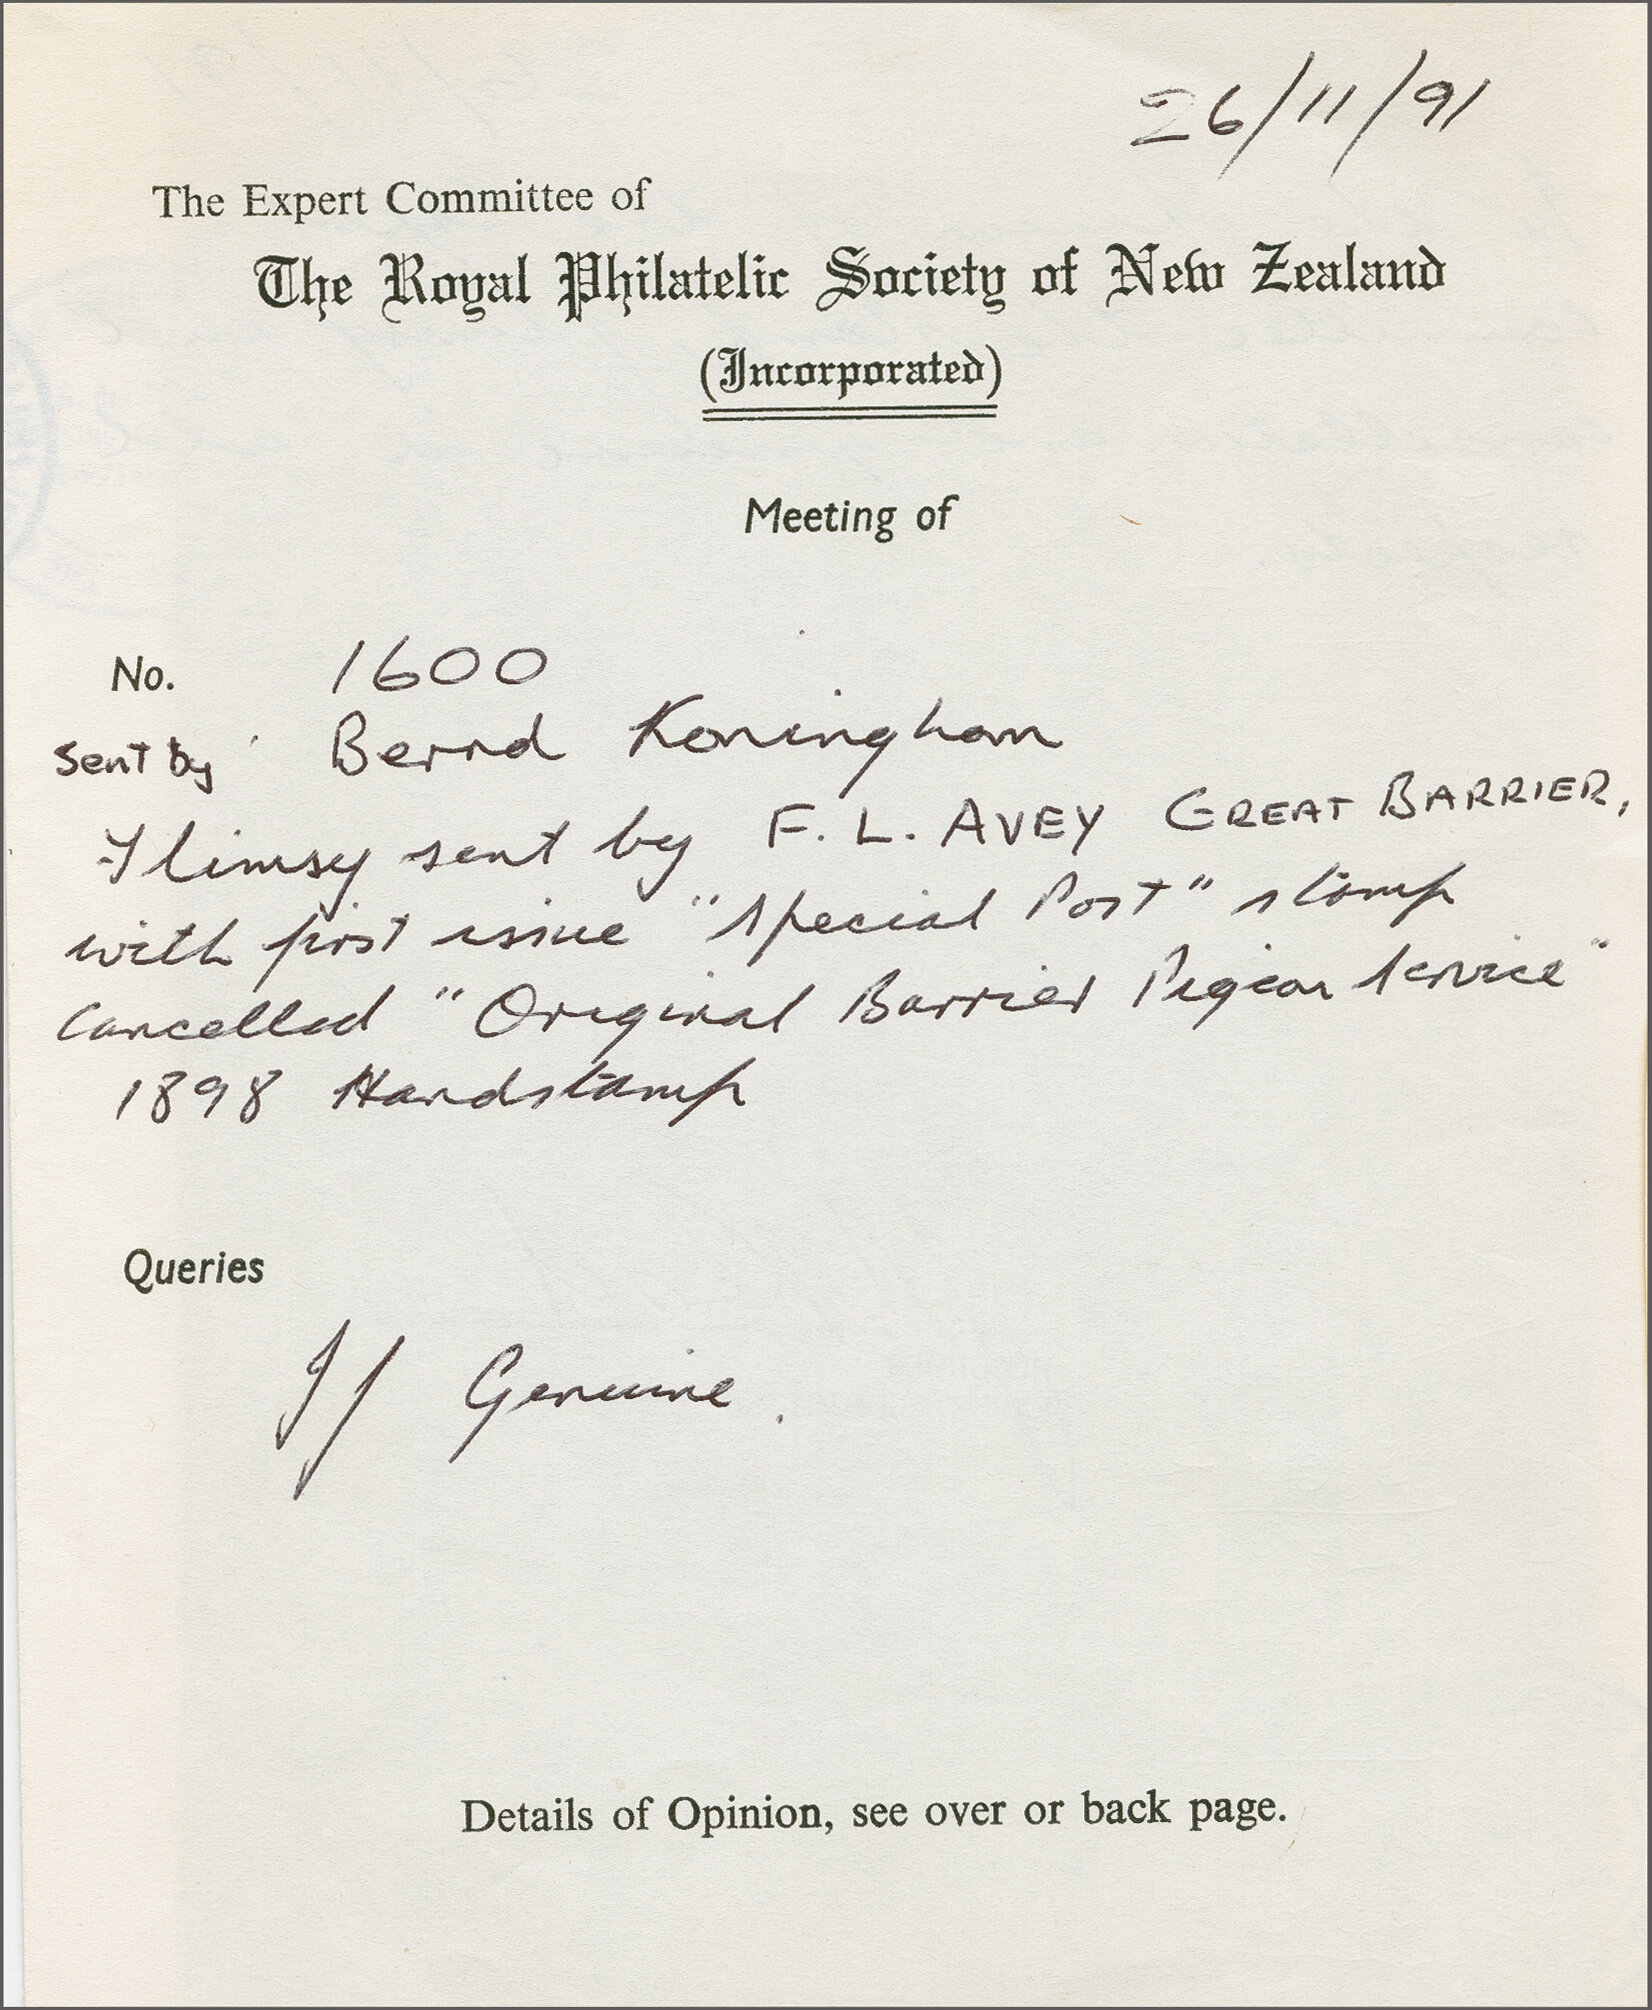 26/11/91
The Expert Committee of
The Royal Philatelic Society of New Zealand
(Incorporated)
Meeting of
No. 1600
Sent by Bernd Koningham
Flimsy sent by F. L. AVEY GREAT BARRIER,
with first issue "Special Post" stamp
Cancelled "Original Barrier Pigeon Service"
1898 Handstamp
Queries
If Genuine.
Details of Opinion, see over or back page.